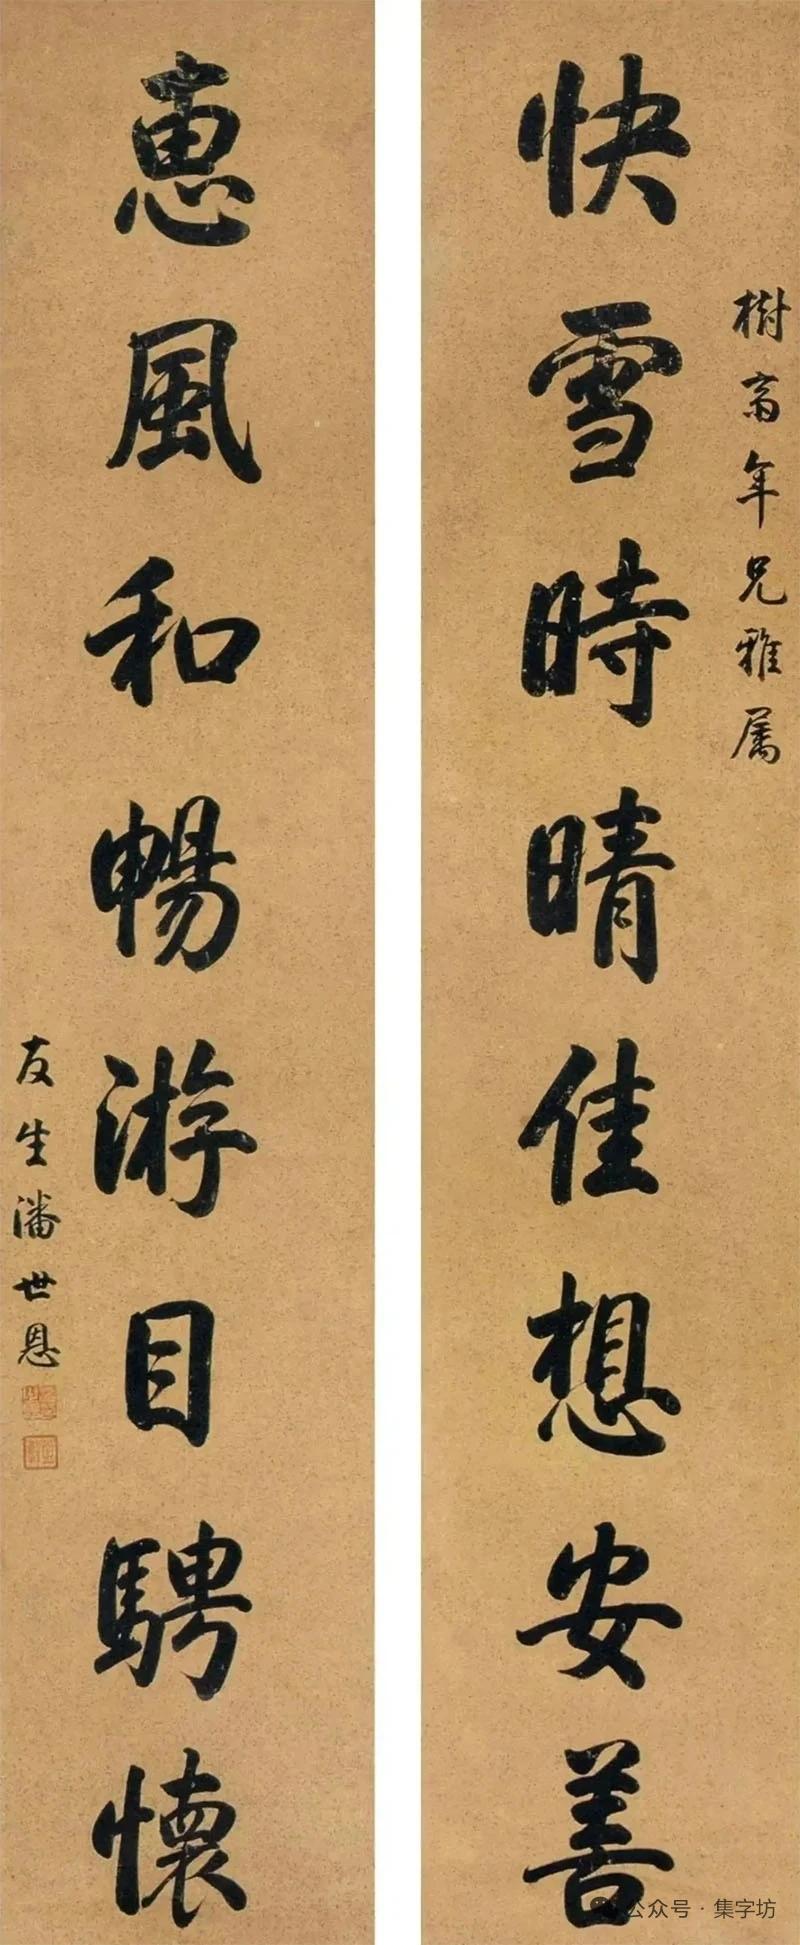 樹斋年兄雅属
快雪時晴佳想安善
惠風和暢游目騁懷
友生潘世恩
公众号·集字坊